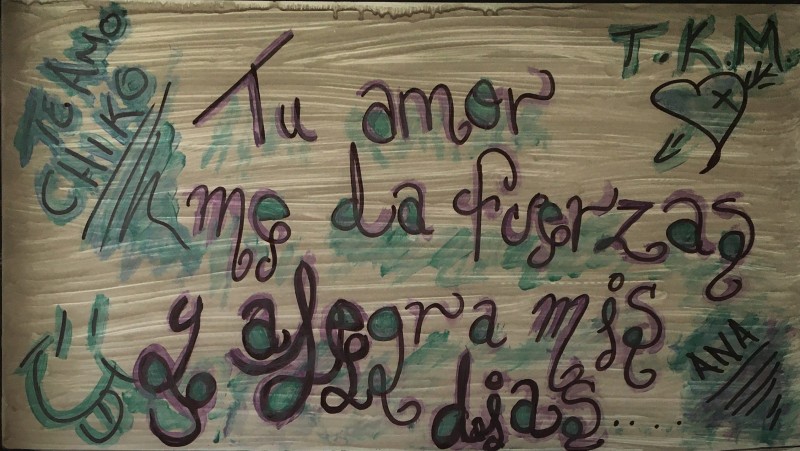 TE AMO
CHIKO
T.K.M.
Tu amor
me da fuerzas
y alegra mis
dias.....
ANA